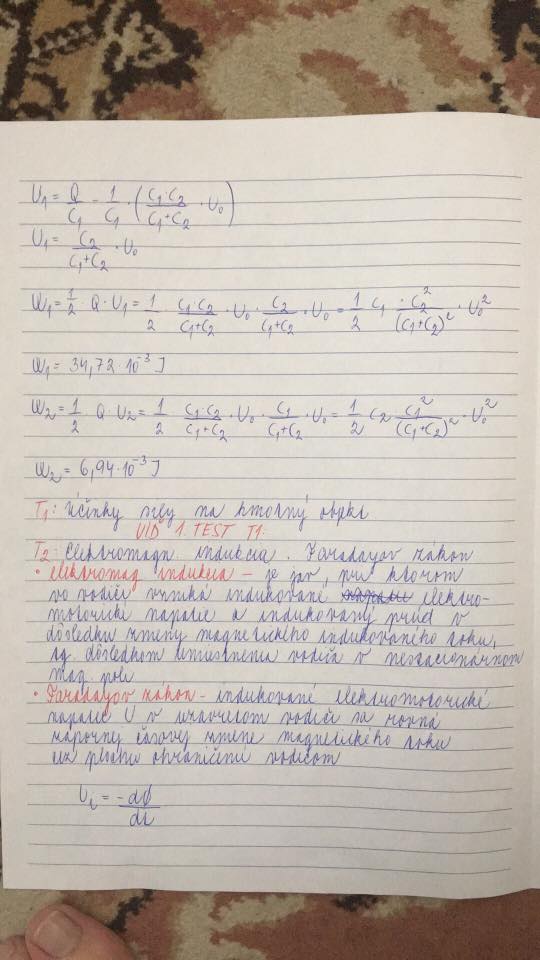 U₁ = Q/C₁ - 1/C₁ · (C₁·C₂/(C₁+C₂) · U₀)
U₁ = C₂/(C₁+C₂) · U₀
W₁ = 1/2 Q·U₁ = 1/2 C₁·C₂/(C₁+C₂) · U₀ · C₂/(C₁+C₂) · U₀ = 1/2 C₁ · C₂²/(C₁+C₂)² · U₀²
W₁ = 34,72·10⁻³ J
W₂ = 1/2 Q·U₂ = 1/2 C₁·C₂/(C₁+C₂) · U₀ · C₁/(C₁+C₂) · U₀ = 1/2 C₂ C₁²/(C₁+C₂)² · U₀²
W₂ = 6,94·10⁻³ J
T₁: Účinky sily na hmotný objekt
VIĎ 1. TEST T1:
T₂: Elektromagn. indukcia. Faradayov zákon
• elektromag indukcia – je jav, pri ktorom
vo vodiči vzniká indukované elektro-
motorické napätie a indukovaný prúd v
dôsledku zmeny magnetického indukovaného toku,
tg. dôsledkom umiestnenia vodiča v nestacionárnom
mag. poli
• Faradayov zákon - indukované elektromotorické
napätie U v uzavretom vodiči sa rovná
zápornej časovej zmene magnetického toku
cez plochu ohraničenú vodičom
Uᵢ = -dϕ/dt